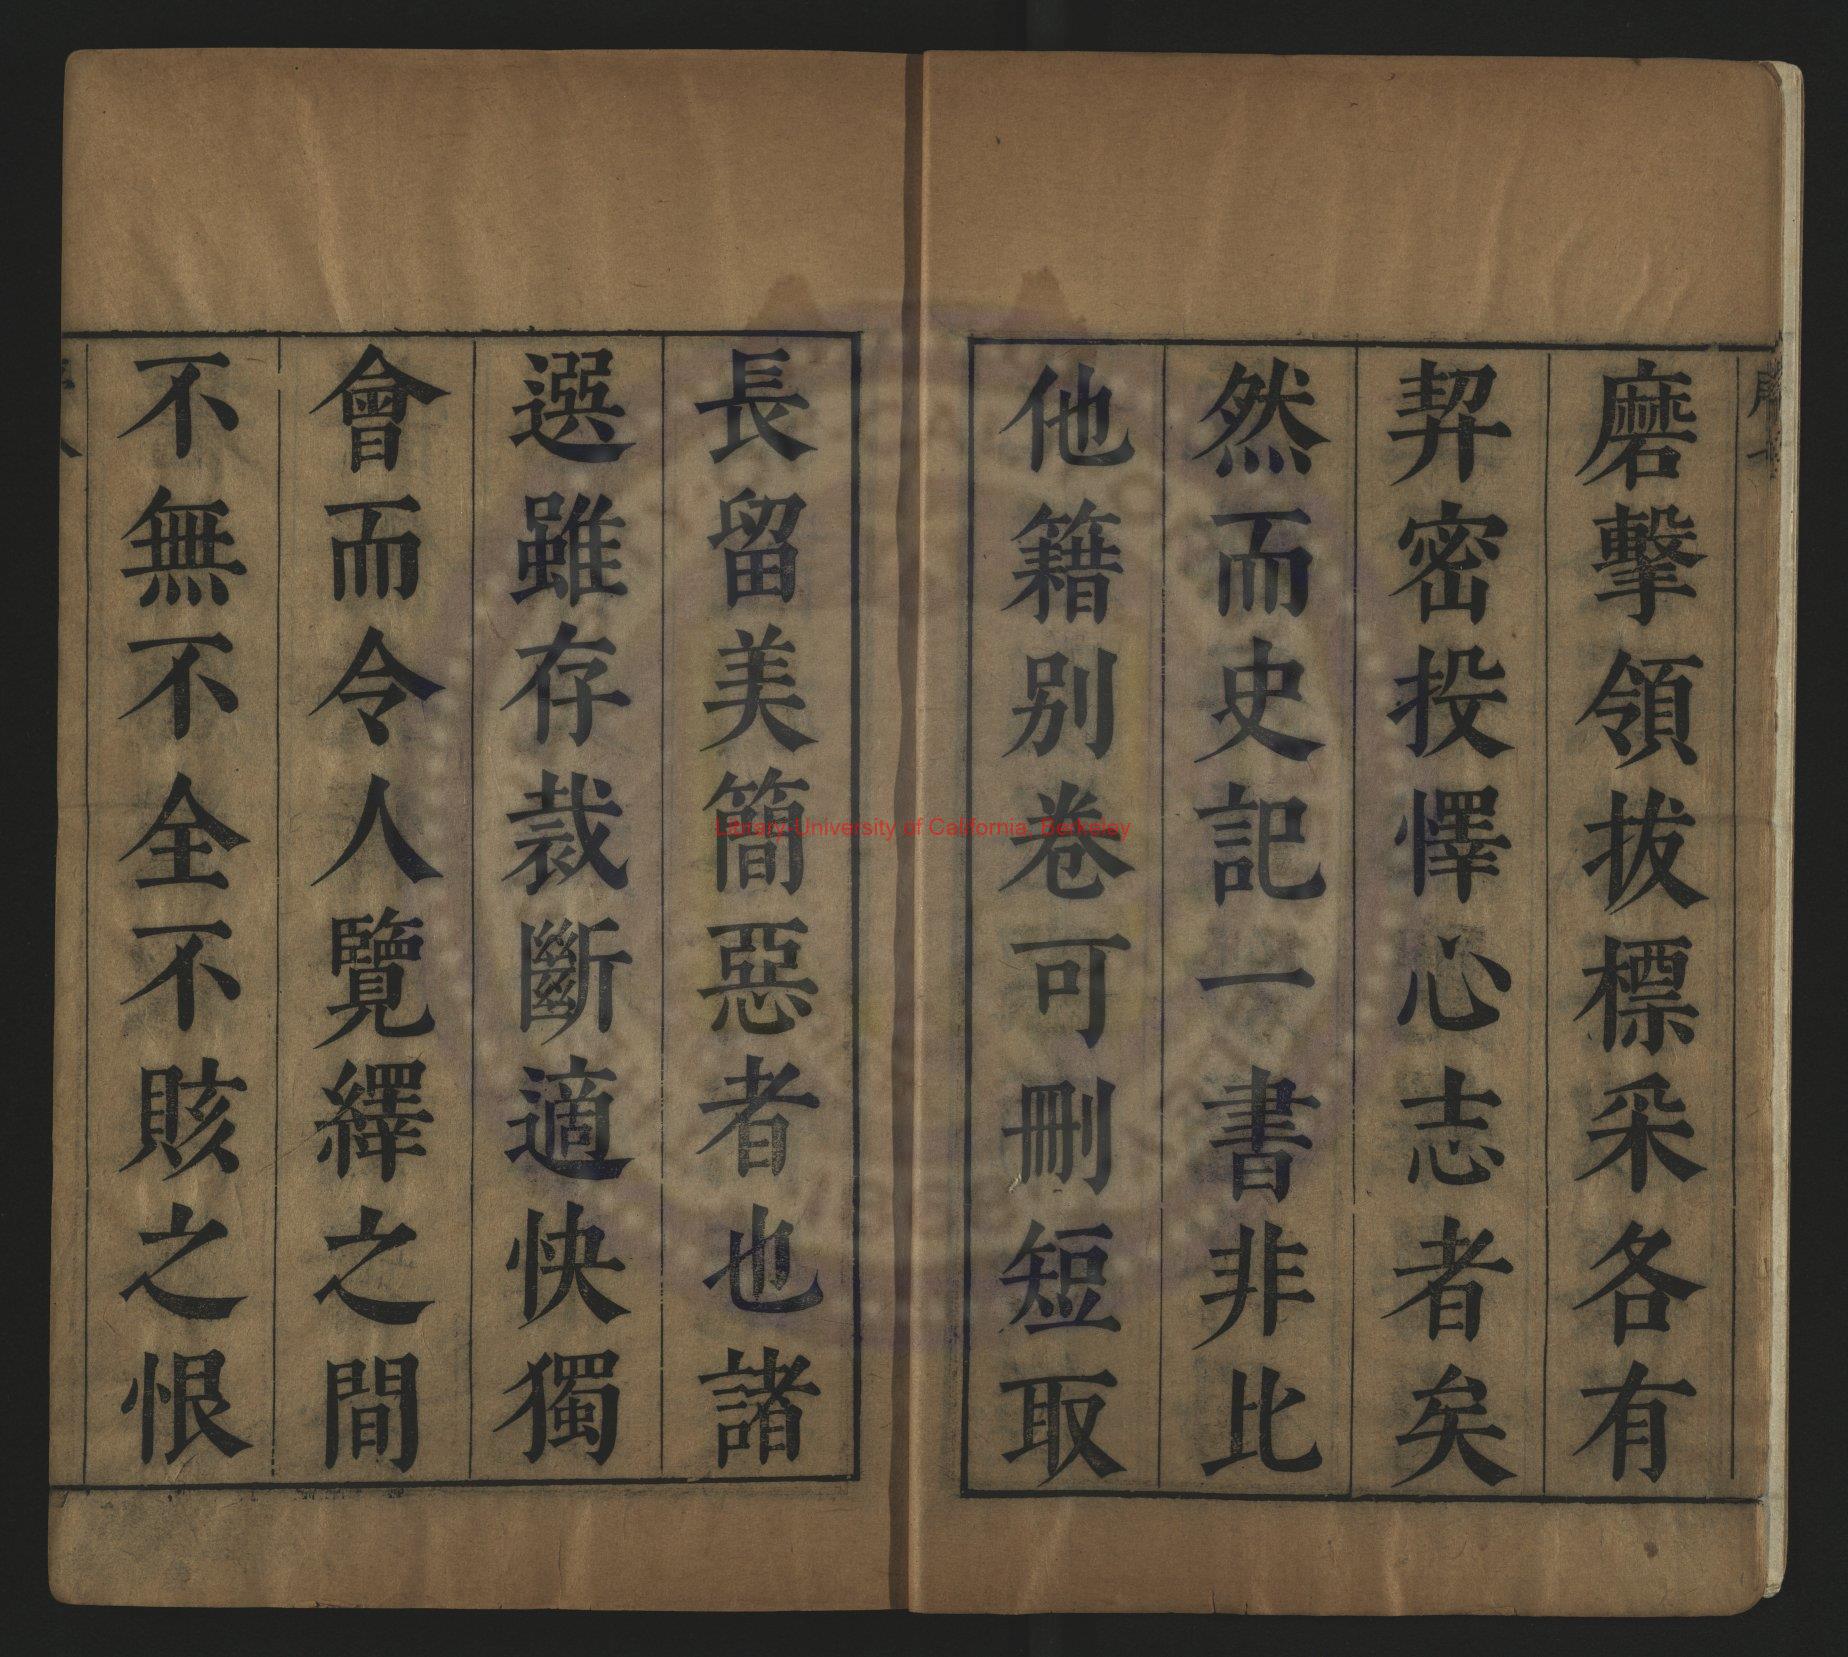 磨擊領拔標采各有
契密投懌心志者矣
然而史記一書非比
他籍別卷可刪短取
長留美簡惡者也諸
選雖存裁斷適快獨
會而令人覽繹之間
不無不全不賅之恨
Library-University of California, Berkeley